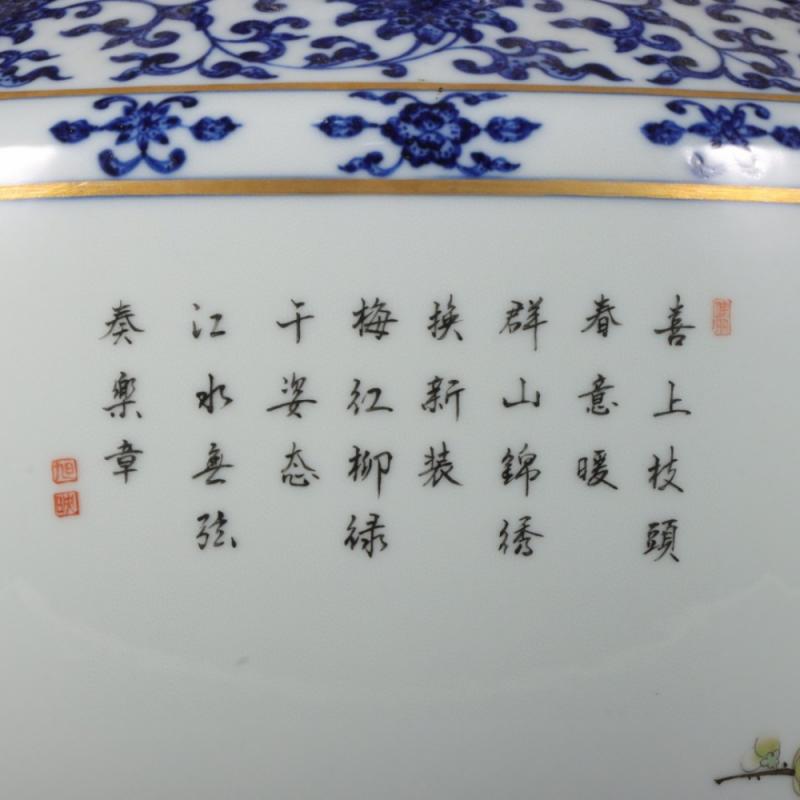 喜上枝頭
春意暖
群山錦綉
換新装
梅红柳禄
千姿态
江水無弦
奏樂章
旭映